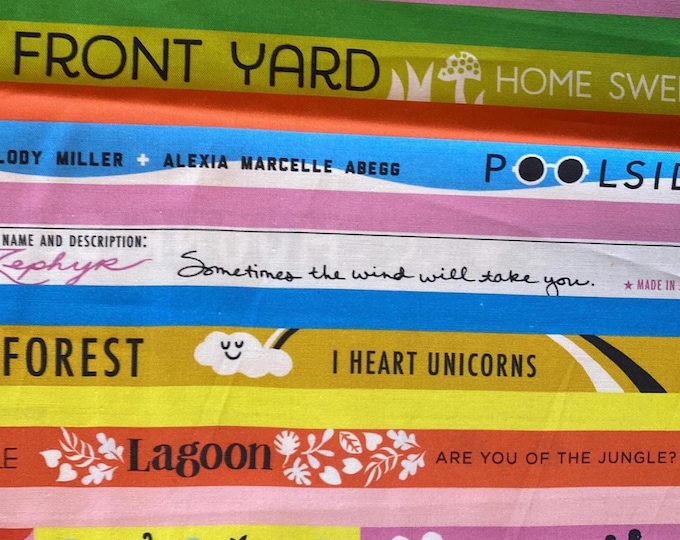 FRONT YARD HOME SWE
LODY MILLER + ALEXIA MARCELLE ABEGG POOLSID
NAME AND DESCRIPTION:
Zephyr Sometimes the wind will take you. ★ MADE IN
FOREST I HEART UNICORNS
LE Lagoon ARE YOU OF THE JUNGLE?